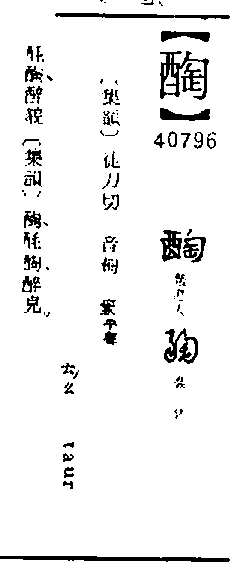 【醄】
40796
醄
〔集韻〕徒刀切 音匋
豪平聲
ㄊㄠˊ taur
酕醄、醉貌。〔集韻〕醄、酕醄、醉皃。